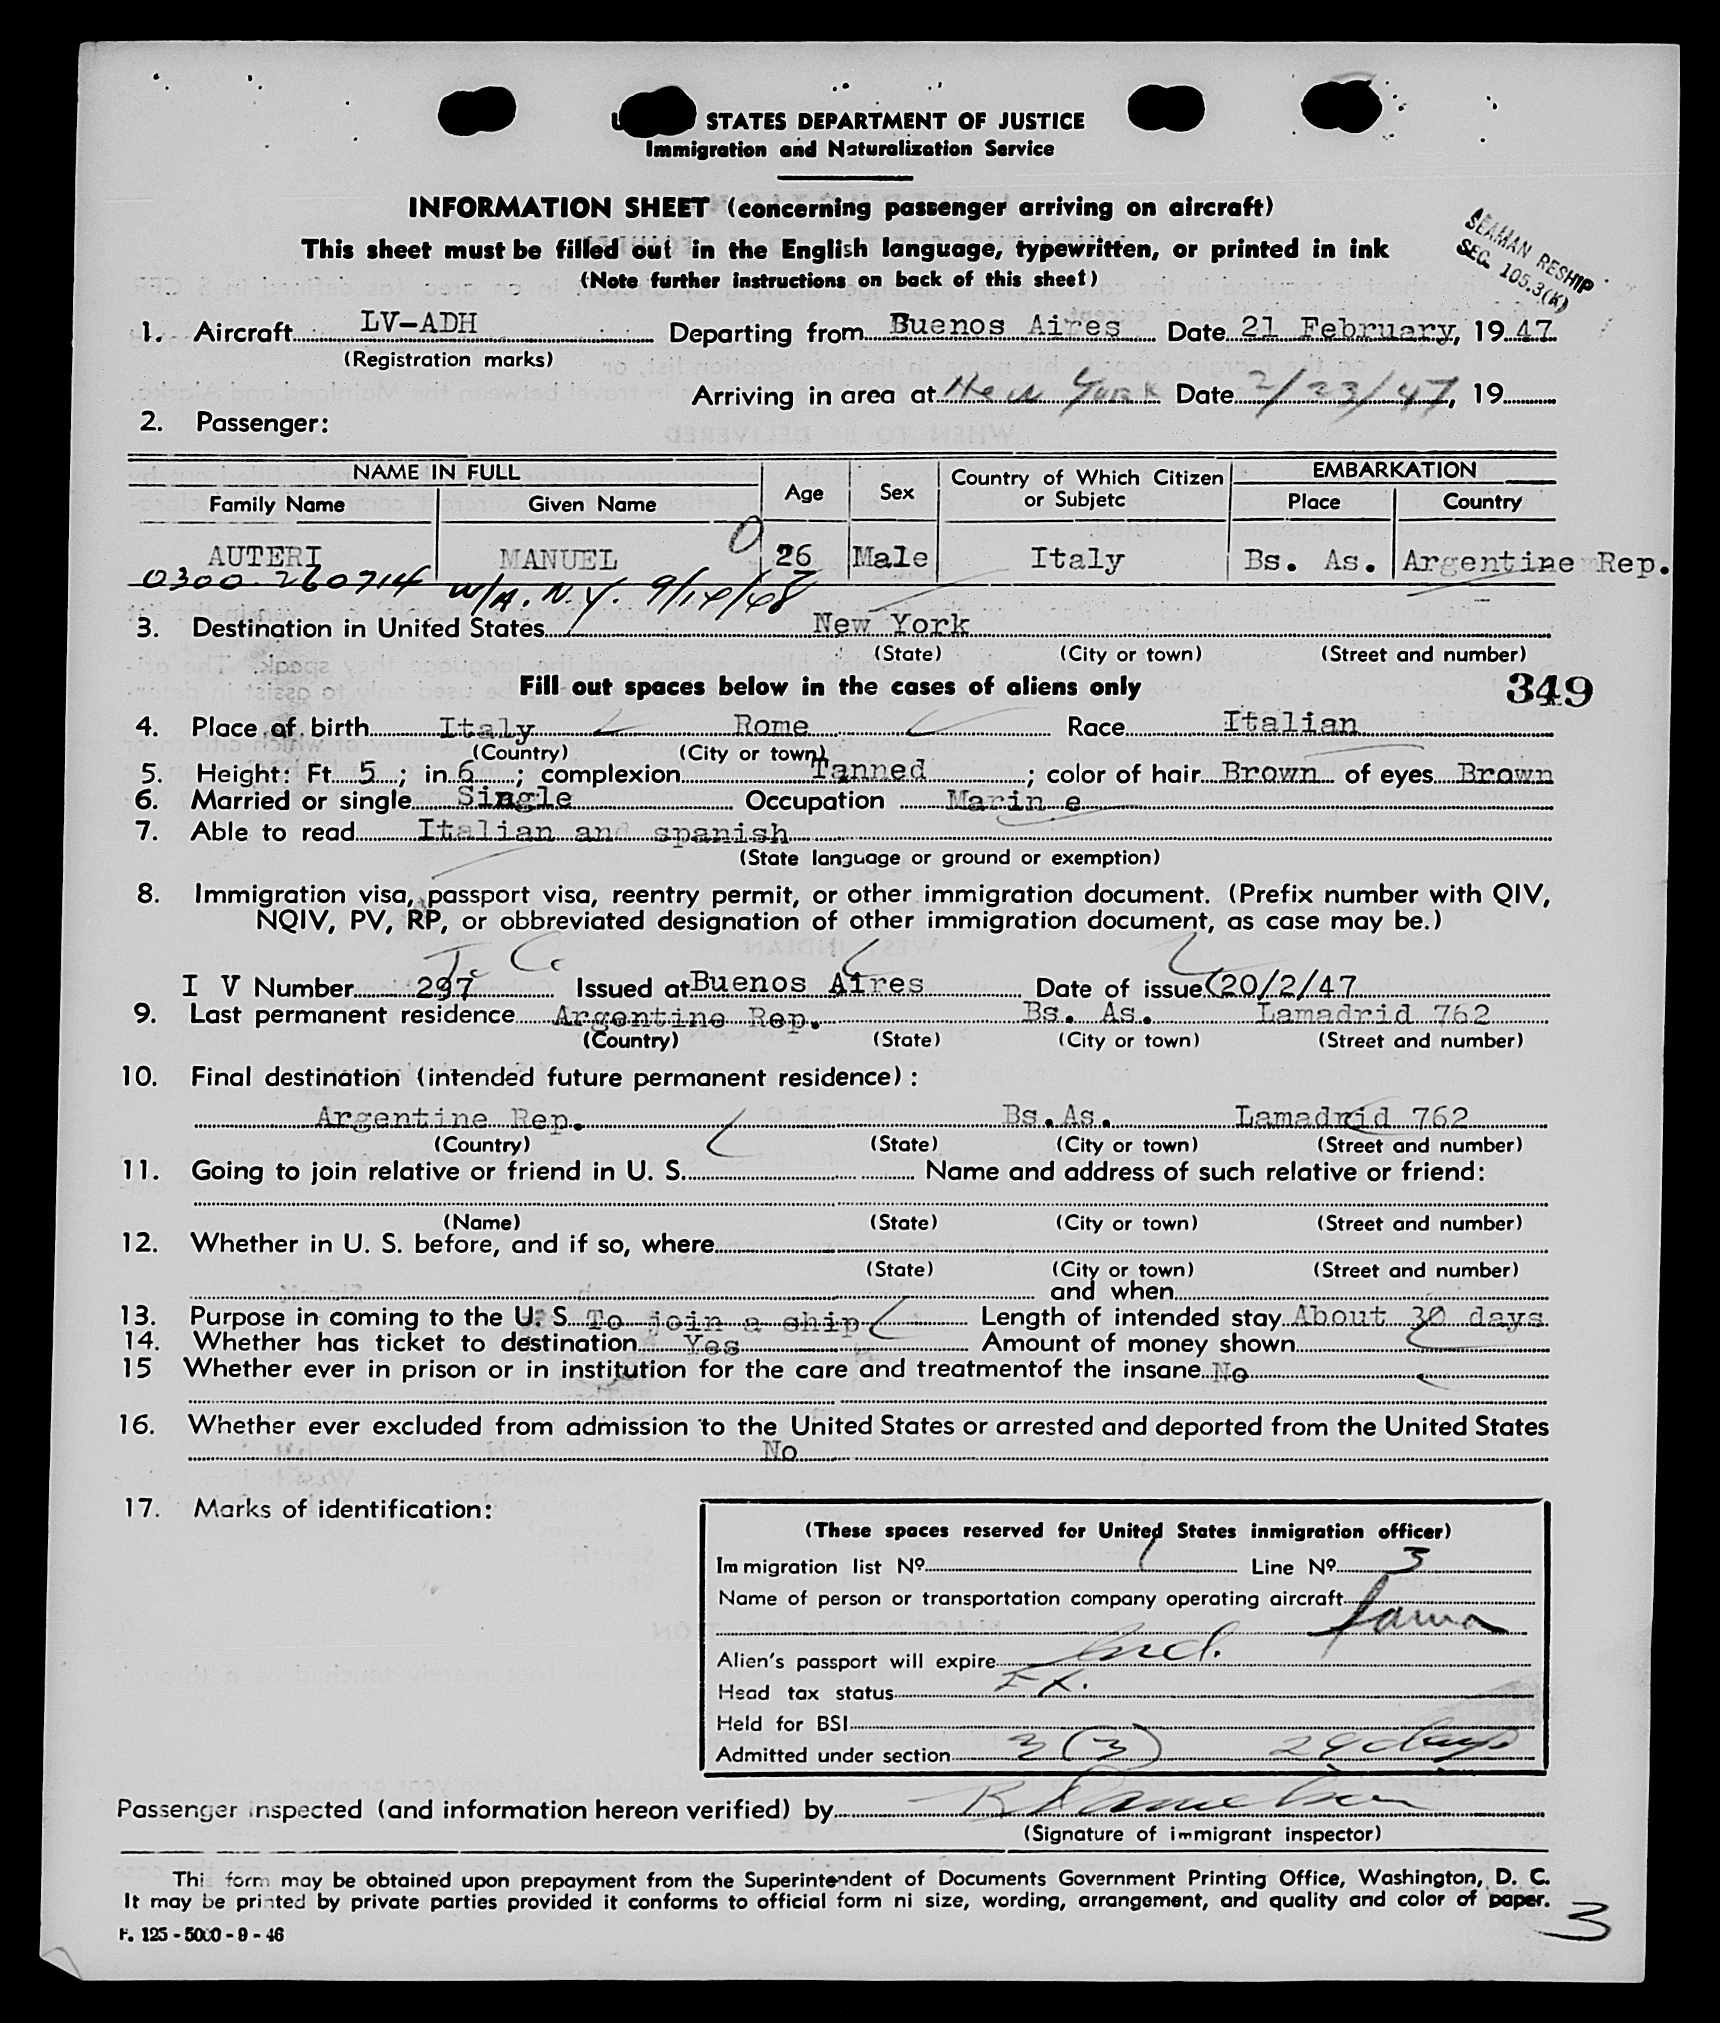 STATES DEPARTMENT OF JUSTICE
Immigration and Naturalization Service
INFORMATION SHEET (concerning passenger arriving on aircraft)
This sheet must be filled out in the English language, typewritten, or printed in ink
(Note further instructions on back of this sheet)
SEAMAN RESHIP
SEC. 105.3(K)
1. Aircraft LV-ADH Departing from Buenos Aires Date 21 February, 1947
(Registration marks)
Arriving in area at New York Date 2/23/47, 19
2. Passenger:
NAME IN FULL Age Sex Country of Which Citizen or Subjetc EMBARKATION
Family Name Given Name Place Country
AUTERI MANUEL 0 26 Male Italy Bs. As. Argentine Rep.
0300-260714 W/A. N.Y. 9/14/48
3. Destination in United States New York
(State) (City or town) (Street and number)
Fill out spaces below in the cases of aliens only 349
4. Place of birth Italy Rome Race Italian
(Country) (City or town)
5. Height: Ft. 5; in 6; complexion Tanned; color of hair Brown of eyes Brown
6. Married or single Single Occupation Marin e
7. Able to read Italian and spanish
(State language or ground or exemption)
8. Immigration visa, passport visa, reentry permit, or other immigration document. (Prefix number with QIV,
NQIV, PV, RP, or obbreviated designation of other immigration document, as case may be.)
I V Number 297 Issued at Buenos Aires Date of issue 20/2/47
9. Last permanent residence Argentine Rep. Bs. As. Lamadrid 762
(Country) (State) (City or town) (Street and number)
10. Final destination (intended future permanent residence):
Argentine Rep. Bs.As. Lamadrid 762
(Country) (State) (City or town) (Street and number)
11. Going to join relative or friend in U. S. Name and address of such relative or friend:
(Name) (State) (City or town) (Street and number)
12. Whether in U. S. before, and if so, where
(State) (City or town) (Street and number)
and when
13. Purpose in coming to the U. S. To join a ship Length of intended stay About 30 days
14. Whether has ticket to destination Yes Amount of money shown
15 Whether ever in prison or in institution for the care and treatmentof the insane No
16. Whether ever excluded from admission to the United States or arrested and deported from the United States
No
17. Marks of identification:
(These spaces reserved for United States inmigration officer)
Immigration list Nº 1 Line Nº 3
Name of person or transportation company operating aircraft
fama
Alien's passport will expire Incl.
Head tax status EX.
Held for BSI
Admitted under section 3 (3) 29 days
Passenger inspected (and information hereon verified) by
(Signature of immigrant inspector)
This form may be obtained upon prepayment from the Superintendent of Documents Government Printing Office, Washington, D. C.
It may be printed by private parties provided it conforms to official form ni size, wording, arrangement, and quality and color of paper.
3
F. 125 - 5000 - 9 - 46